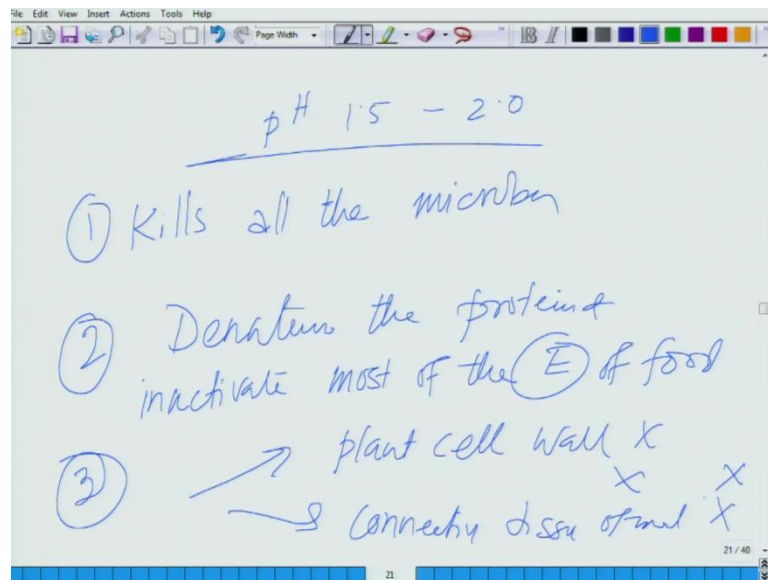 File Edit View Insert Actions Tools Help
Page Width B I
pH 1.5 - 2.0
① Kills all the
② Denature the protein &
inactivate most of the Ⓔ of food
③ plant cell wall X
X X
tissu of X
21 / 40
21